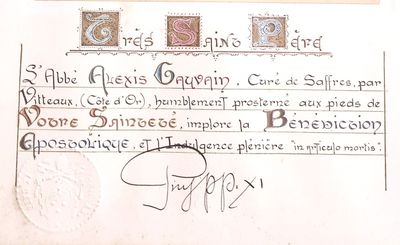 Très Saint Père
L'Abbé Alexis Gauvain, Curé de Saffres, par
Vitteaux, (Côte d'Or), humblement prosterné aux pieds de
Votre Sainteté, implore la Bénédiction
Apostolique, et l'Indulgence plénière "in articulo mortis".
Pius pp. XI